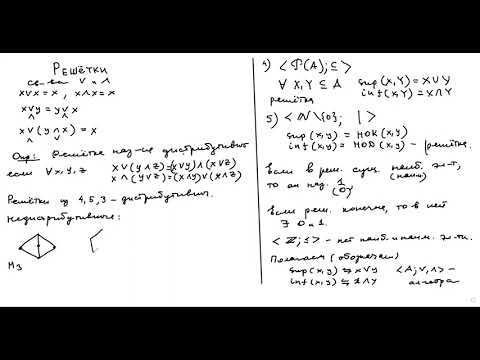 Решётки
св-ва ∨ и ∧
x∨x = x, x∧x = x
x∨y = y∨x
∧ ∧
x∨(y∧x) = x
∧ ∨
Опр: Решётка наз-ся дистрибутивн
если ∀x,y,z x∨(y∧z)=(x∨y)∧(x∨z)
x∧(y∨z)=(x∧y)∨(x∧z)
Решётки из 4,5,3 – дистрибутивн.
Недистрибутивные:
M₃
4) <𝒫(A);⊆>
∀ X,Y ⊆ A sup(X,Y) = X∪Y
inf(X,Y) = X∩Y
решётка
5) <ℕ\{0}; |>
sup(x,y) = НОК(x,y)
inf(x,y) = НОД(x,y) – решётка.
Если в реш. сущ. наиб. эл-т,
(наим)
то он наз. 1
(0)
Если реш. конечна, то в ней
∃ 0 и 1.
<ℤ;≤> – нет наиб. и наим. эл-тов.
Полагаем (обозначаем)
sup(x,y) ⇆ x∨y <A;∨,∧> –
inf(x,y) ⇆ x∧y алгебра